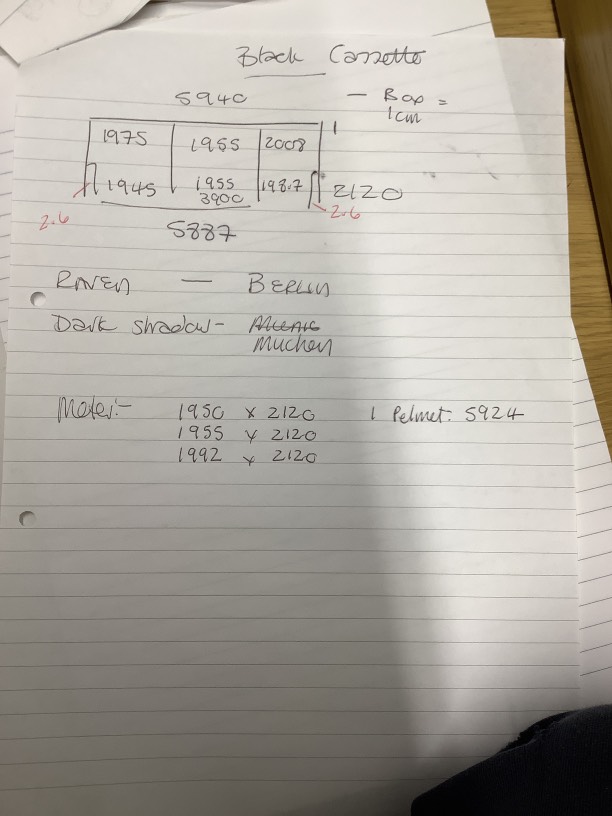 Black Cassette
5940
- Box =
1cm
1975 1955 2008 1
1945 1955 1987 2120
3900
2.6 2.6
5887
RAVEN - BERLIN
Dark shadow -
Muchen
1950 x 2120 1 Pelmet: 5924
1955 x 2120
1992 x 2120